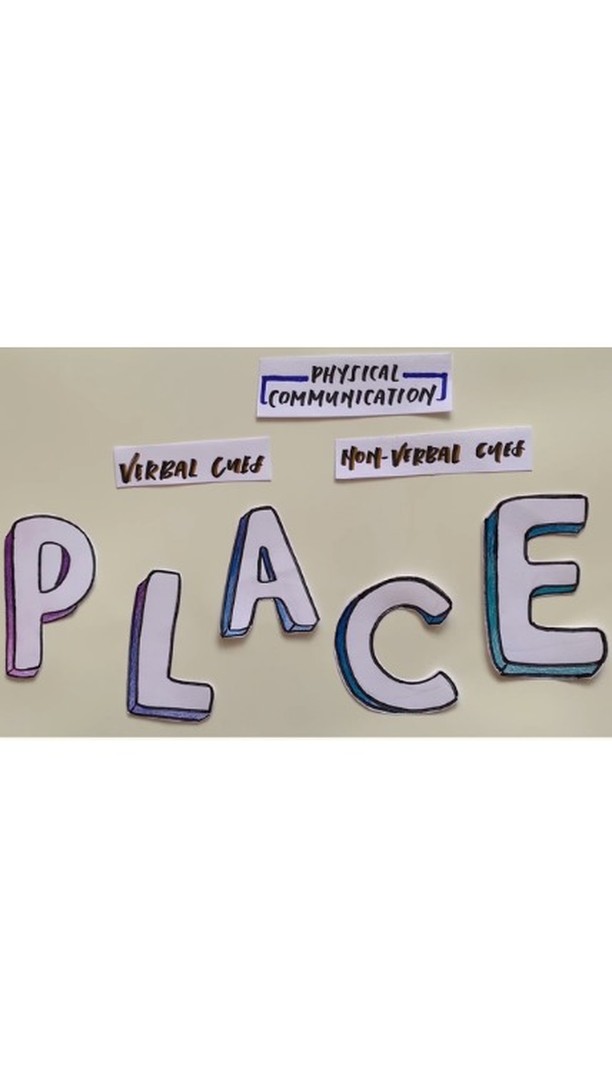 PHYSICAL
COMMUNICATION
VERBAL CUES
NON-VERBAL CUES
PLACE